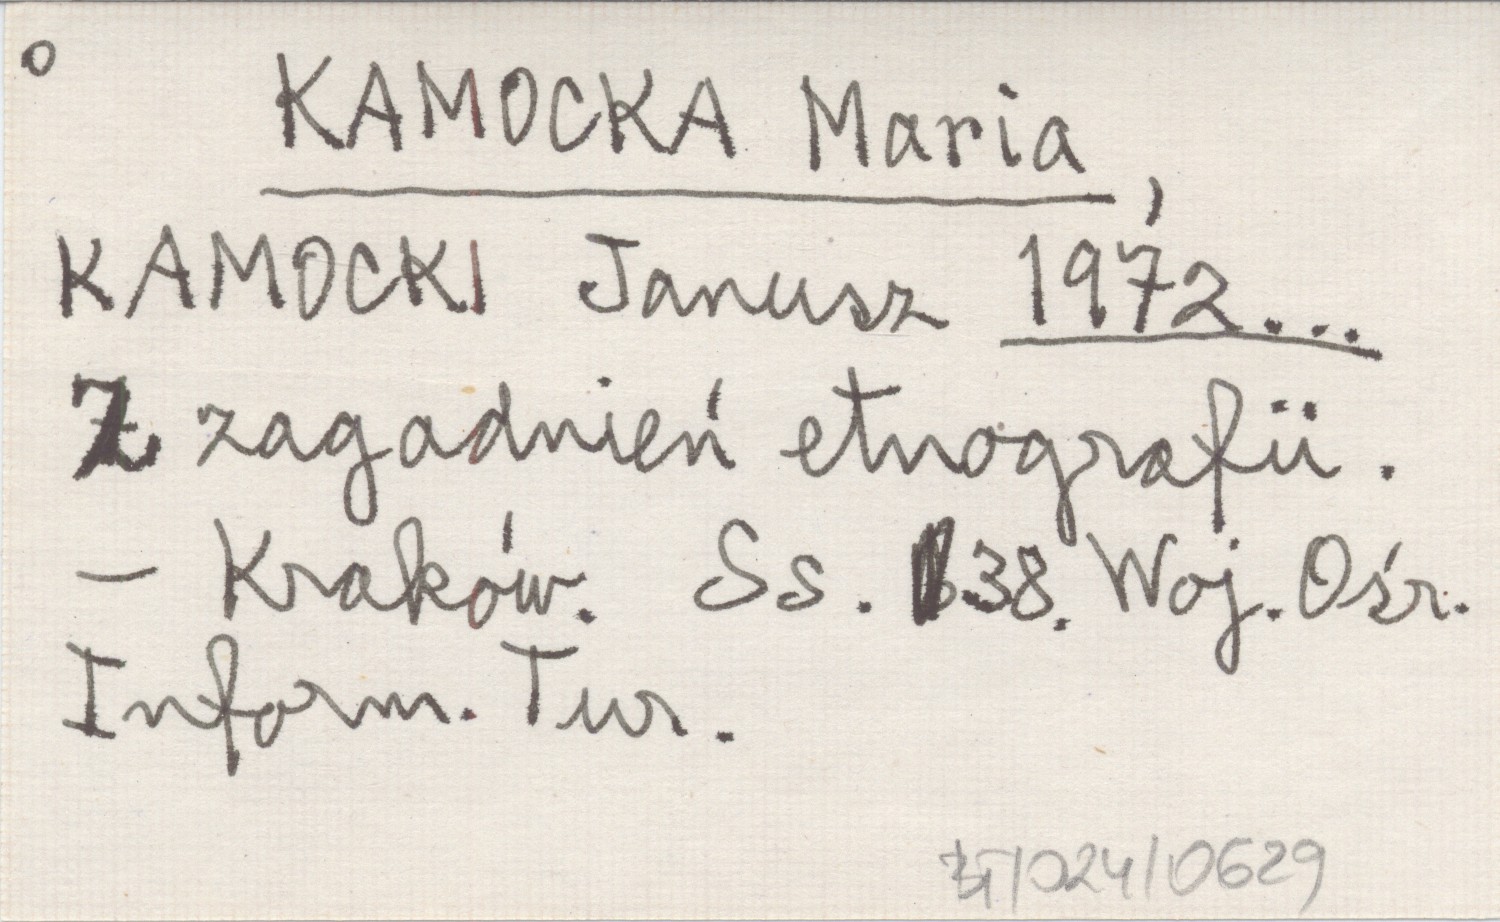 o
KAMOCKA Maria,
KAMOCKI Janusz 1972...
Z zagadnień etnografii.
- Kraków. Ss. 38. Woj. Ośr.
Inform. Tur.
/024/0629